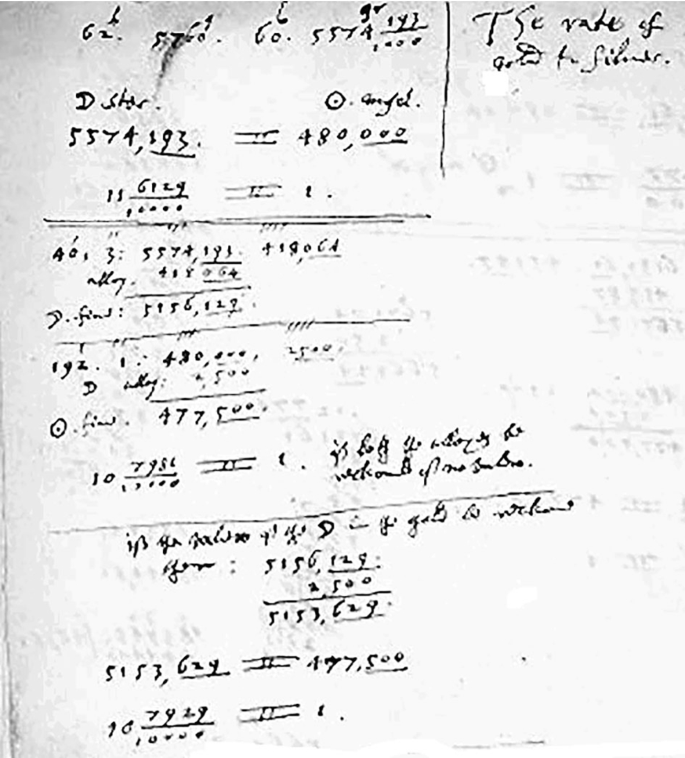 62. 5760. 60. 5574 193/1000
The rate of
gold to silver.
☽ ster. ☉. 
5574,193. = 480,000
11 6129/10000 = 1.
40, 3: 5574,193. 418,064
alloy. 418 064
☽. fine: 5156,129.
192. 1: 480,000, 2500.
☽ alloy: 2,500
☉ fine. 477,500.
10 7981/10000 = 1. if both the alloyes be
reckoned of no valew.
if the valew of the ☽ in the gold be reckoned
then: 5156,129:
2,500
5153,629.
5153,629 = 477,500
10 7929/10000 = 1.